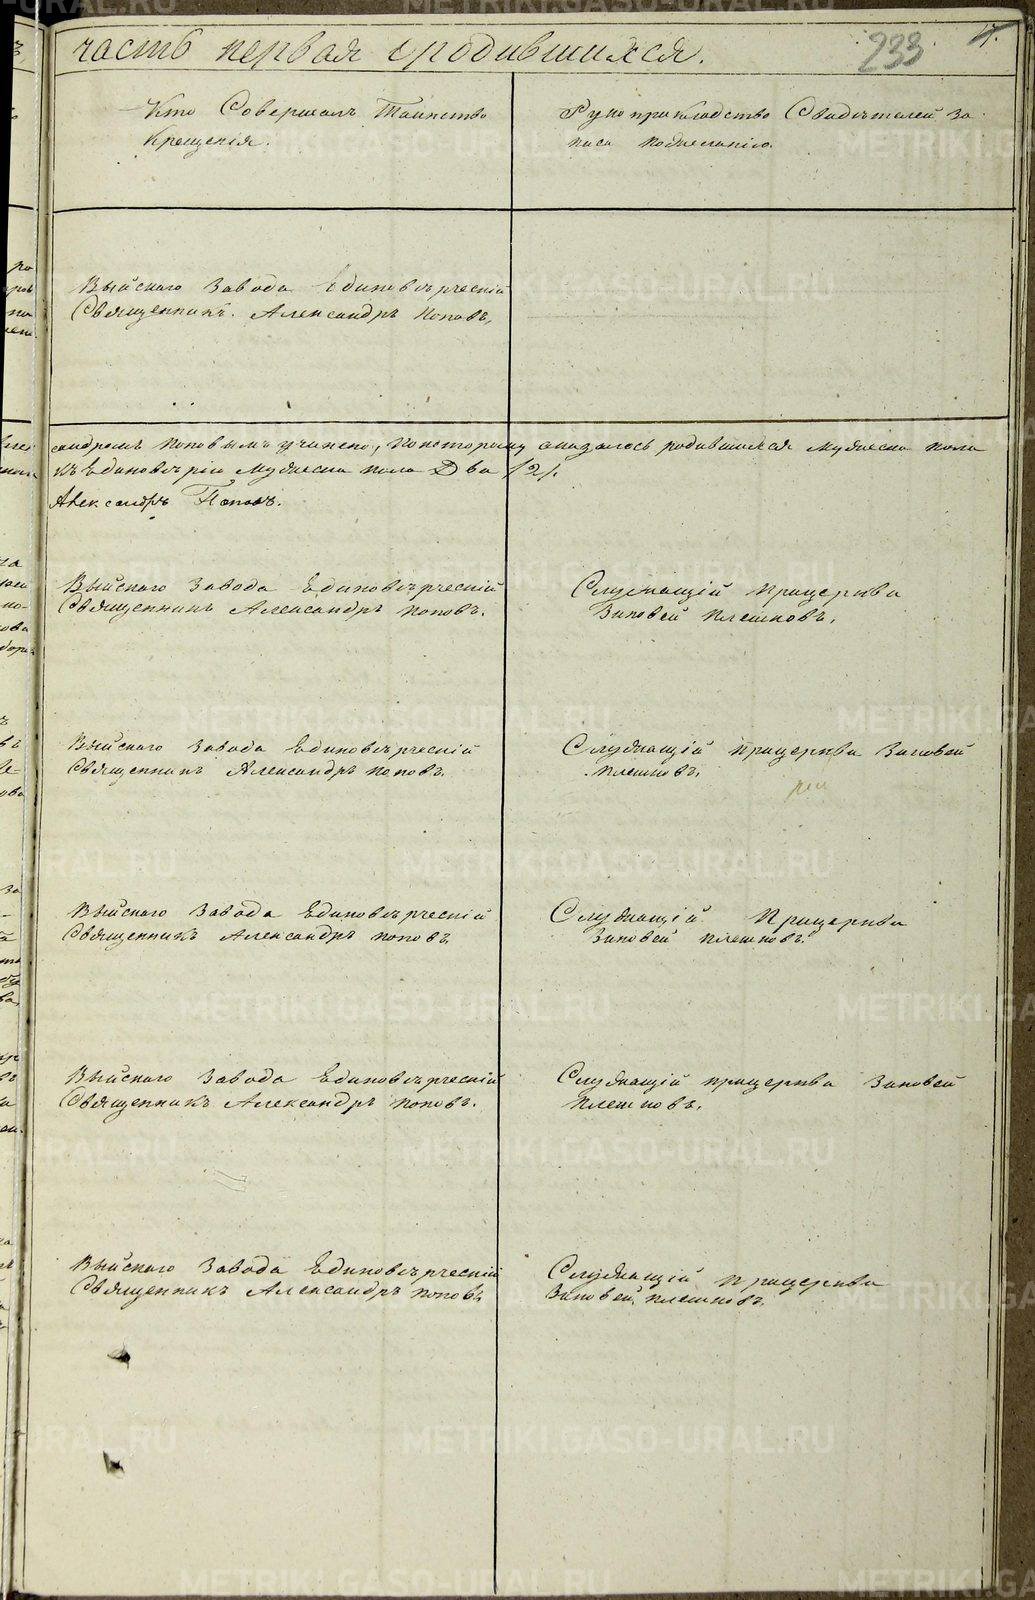 часть первая о родившихся.
233
Кто Совершалъ Таинство
Крещенія.
Рукоприкладство Свидѣтелей за-
писи по желанію.
Выйскаго Завода Единовѣрческій
Священникъ. Александръ Поповъ.
сандромъ Поповымъ учинено, по которому оказалось родившихся мужеска пола
къ Единовѣрію мужеска пола Два /2/.
Александръ Поповъ.
Выйскаго Завода Единовѣрческій
Священникъ Александръ Поповъ.
Служащій при церкви
Зиновей Плешковъ.
Выйскаго Завода Единовѣрческій
Священникъ Александръ Поповъ.
Служащій при церкви Зиновей
Плешковъ.
Выйскаго Завода Единовѣрческій
Священникъ Александръ Поповъ.
Служащій При церкви
Зиновей Плешковъ.
Выйскаго Завода Единовѣрческій
Священникъ Александръ Поповъ.
Служащій при церкви Зиновей
Плешковъ.
Выйскаго Завода Единовѣрческій
Священникъ Александръ Поповъ.
Служащій При церкви
Зиновей Плешковъ.
METRIKI.GASO-URAL.RU